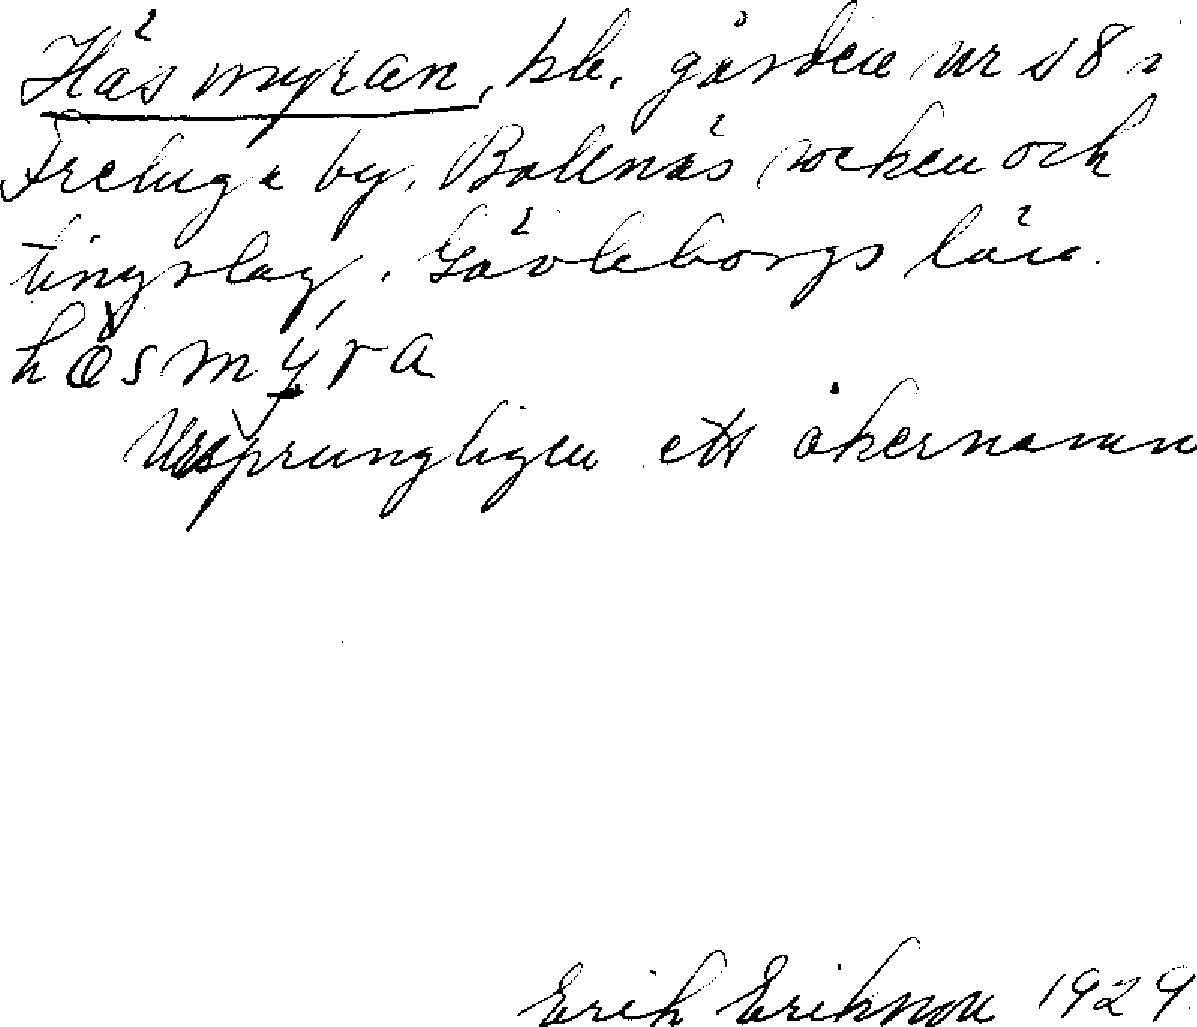 Häsmyran, bb. gården nr 18 i
Freluga by. Bollnäs socken och
tingslag. Gävleborgs län.
hösmýra
Ursprungligen ett åkernamn
Erik Eriksson 1929.